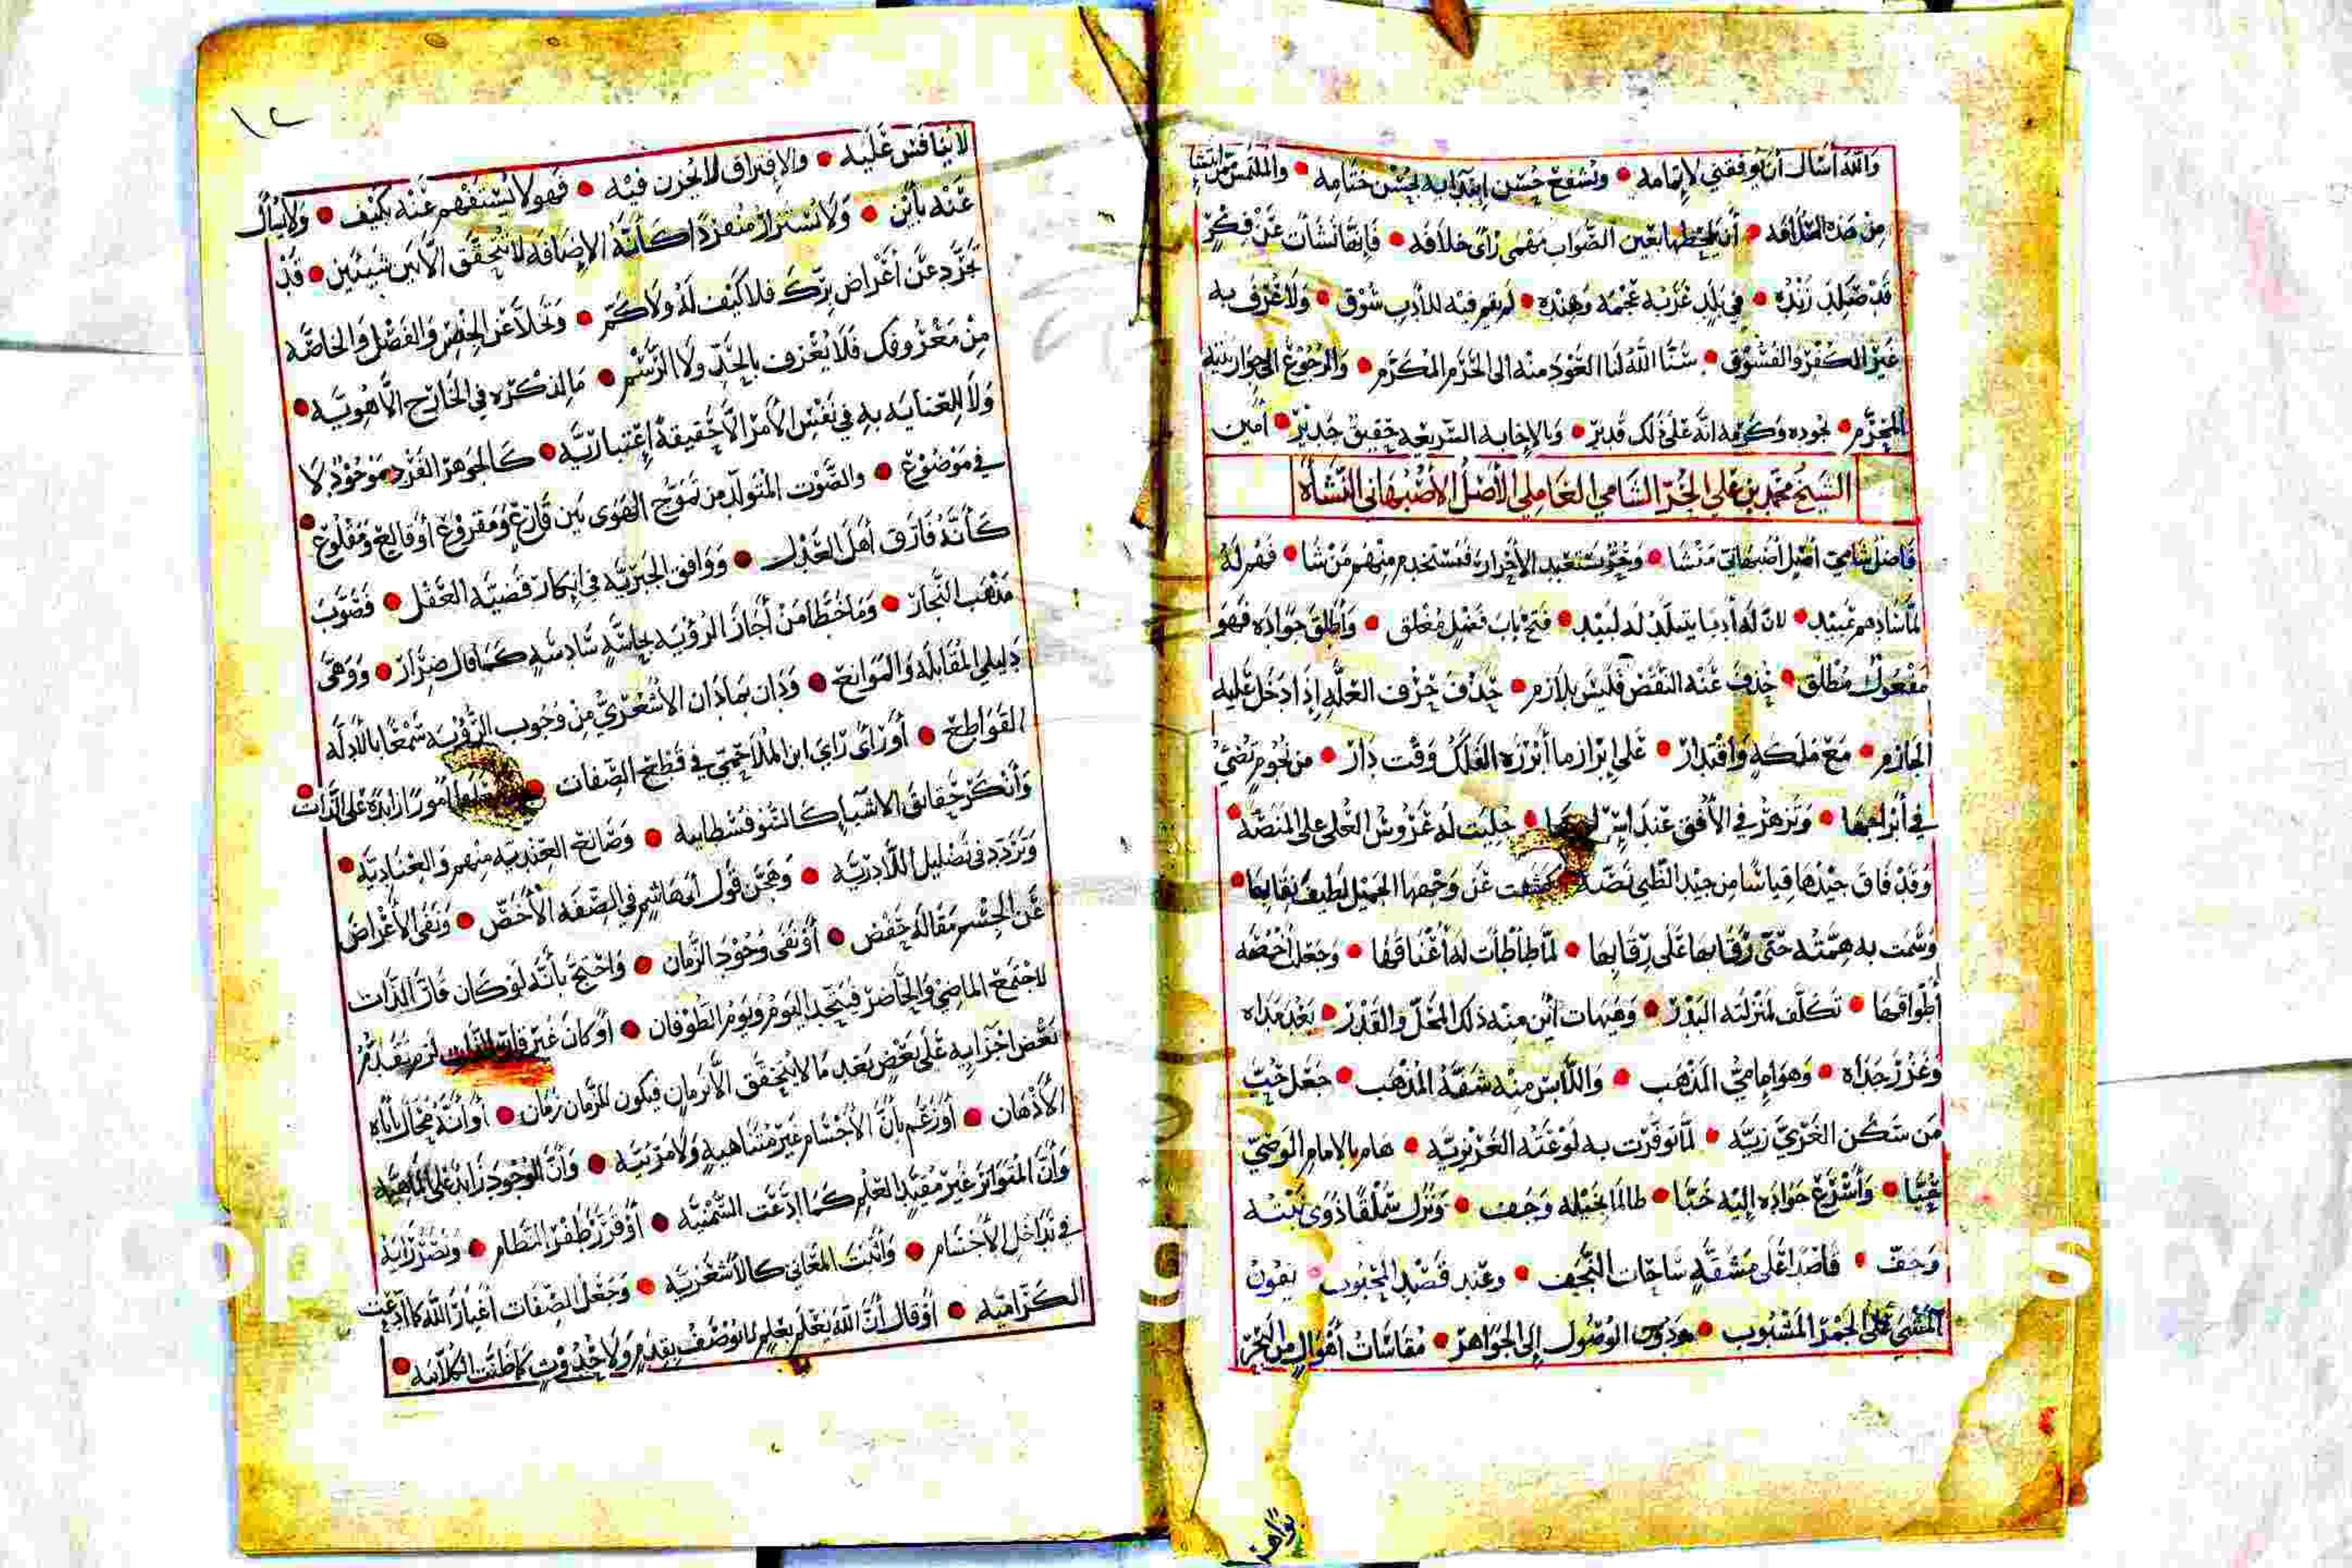 والله أسأل أن يوفقني لإتمامه • ويشفع حسن ابتدائه بحسن ختامه • والملتمس ممن نشا
من هذه السلافه • أن يلحظها بعين الصواب مهمى رأى خلافه • فإنها نشأت عن فكرٍ
قد صلد زنده • في بلد غربه عجمه وهنده • لم يقم فيه للأدب سوق • ولا عرف به
غير الكفر والفسوق • سنا الله لنا العود منه الى الحرم المكرم • والرجوع الى جوار بيته
المحرم • بجوده وكرمه انه على ذلك قدير • وبالإجابه السريعه حقيق جدير • أمين
الشيخ محمد بن علي الحر الشامي العاملي الأصل الأصبهاني النشأة
فاضل شامي أصل أصبهاني منشا • ونحو يستعبد الأحرار فيستخدم منهم من شا • فهم له
لما شادهم عبيد • لان له أدبا يتبلد له لبيد • فتح باب فضل مغلق • وأطلق جواده فهو
مفعول مطلق • حذف عنه النقض فليس بلازم • حذف حرف العله إذا دخل عليه
الجازم • مع ملكه واقتدار • على إبراز ما أبرزه الفلك وقت دار • من نجوم تضي
في أبراجها • وتزهر في الأفق عند • جليت له عروش العلى على المنصه •
وقد فاق جيدها قياسا من جيد الظبي نصه • كشفت عن وجهها الجميل لطيف نقابها •
وسمت به همته حتى رقا بها على رقابها • لما طأطأت له أعناقها • وجعل أخمصه
أطواقها • تكلف لمنزلته البدر • وهيهات أين منه ذلك المحل والقدر • بعد مداه
وغزر جداه • وهو إمامي المذهب • واللابس منه شقة المذهب • جعل حب
من سكن الغري ريه • لما توفرت به لوعته الغريزيه • هام بالامام الوصي
حبا • وأسرع جواده إليه خبا • طالما بخيله وجف • ونزل سملقا ذوى نبته
وجف • قاصدا على مشقه ساحات النجف • وعند قصد المحبوب • يهون
المشي على الجمر المشبوب • ودون الوصول إلى الجواهر • مقاسات أهوال من البحر
١٢
لا ينافس عليه • والإفتراق لا يحزن فيه • فهو لا يستفهم عنه بكيف • ولا يسأل
عنه بأين • ولا يستراد منفردا كأنه الإضافه لا تتحقق الا بين شيئين • قد
تجرد عن أعراض برك فلا كيف له ولا كم • وتخلا عن الجنس والفصل والخاصه
من معروفك فلا يعرف بالحد ولا الرسم • ما لذكره في الخارج الا هويه •
ولا للعنايه به في نفس الأمر الا حقيقة إعتباريه • كالجوهر الفرد موجود لا
في موضوع • والصوت المتولد من تموج الهوى بين قارع ومقروع أو قالع ومقلوع •
كأنه فارق أهل العدل • ووافق الجبريه في إنكار قضيه العقل • فصوب
مذهب النجار • وما خطا من أجاز الرؤيه بحاسه سادسه كما قال ضرار • ووهى
دليلي المقابله والموانع • ودان بما دان الأشعري من وجوب الرؤيه سمعا بالأدله
القواطع • أو رأى رأي ابن الملاحمي في قطع الصفات • أمورا زايده على الذات •
وأنكر حقايق الاشيا كالسوفسطاييه • وصانع العنديه منهم والعناديه •
وتردد في تضليل اللاادريه • وهجن قول أبي هاشم في الصفه الأخص • ونفى الأعراض
عن الجسم مقاله حفص • أو نفى وجود الزمان • واحتج بأنه لو كان قار الذات
لاجتمع الماضي والحاضر فيتحد اليوم ويوم الطوفان • أو كان غير قار الذات لزم تقدم
بعض اجزايه على بعض بعد ما لا يتحقق الا بزمان فيكون للزمان زمان • أو أنه محال تأباه
الأذهان • أو زعم بأن الأجسام غير متناهيه ولا مرئيه • وأن الوجود زايد على الماهيه
وأن المتواتر غير مفيد العلم كما ادعت السمنيه • أو قرر طفر النظام • ونصر رأيه
في تداخل الأجسام • وأثبت المعاني كالأشعريه • وجعل الصفات أغيار الله كما ادعت
الكراميه • أو قال أن الله يعلم بعلم لا يوصف بقدم ولا حدوث كما ظنت الكلابيه •